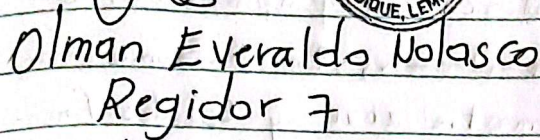 IQUE, LEM
Olman Everaldo Nolasco
Regidor 7